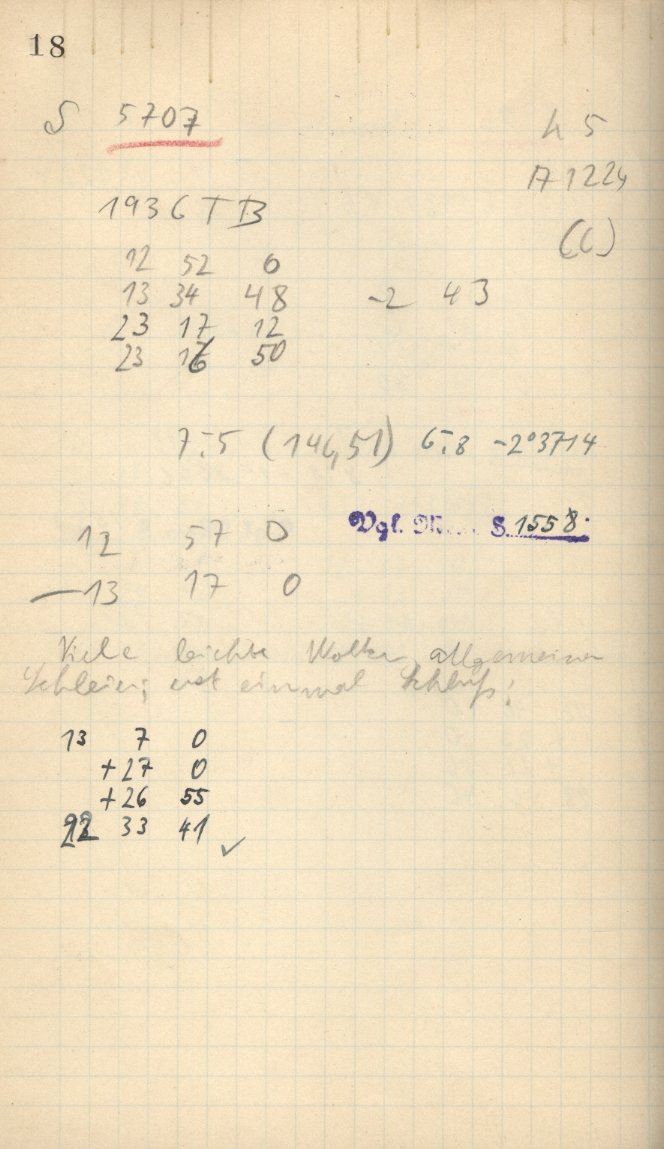 18
S 5707
h 5
A 1224
1936 T B
(6)
12 52 0
13 34 48 -2 43
23 17 12
23 16 50
7.5 (146,51) 6.8 -2°3714
Vgl. S. 1558.
12 57 0
—13 17 0
Viele leichte Wolken, allgemeiner
Schleier; erst einmal Schluß!
13 7 0
+27 0
+26 55
33 41 ✓